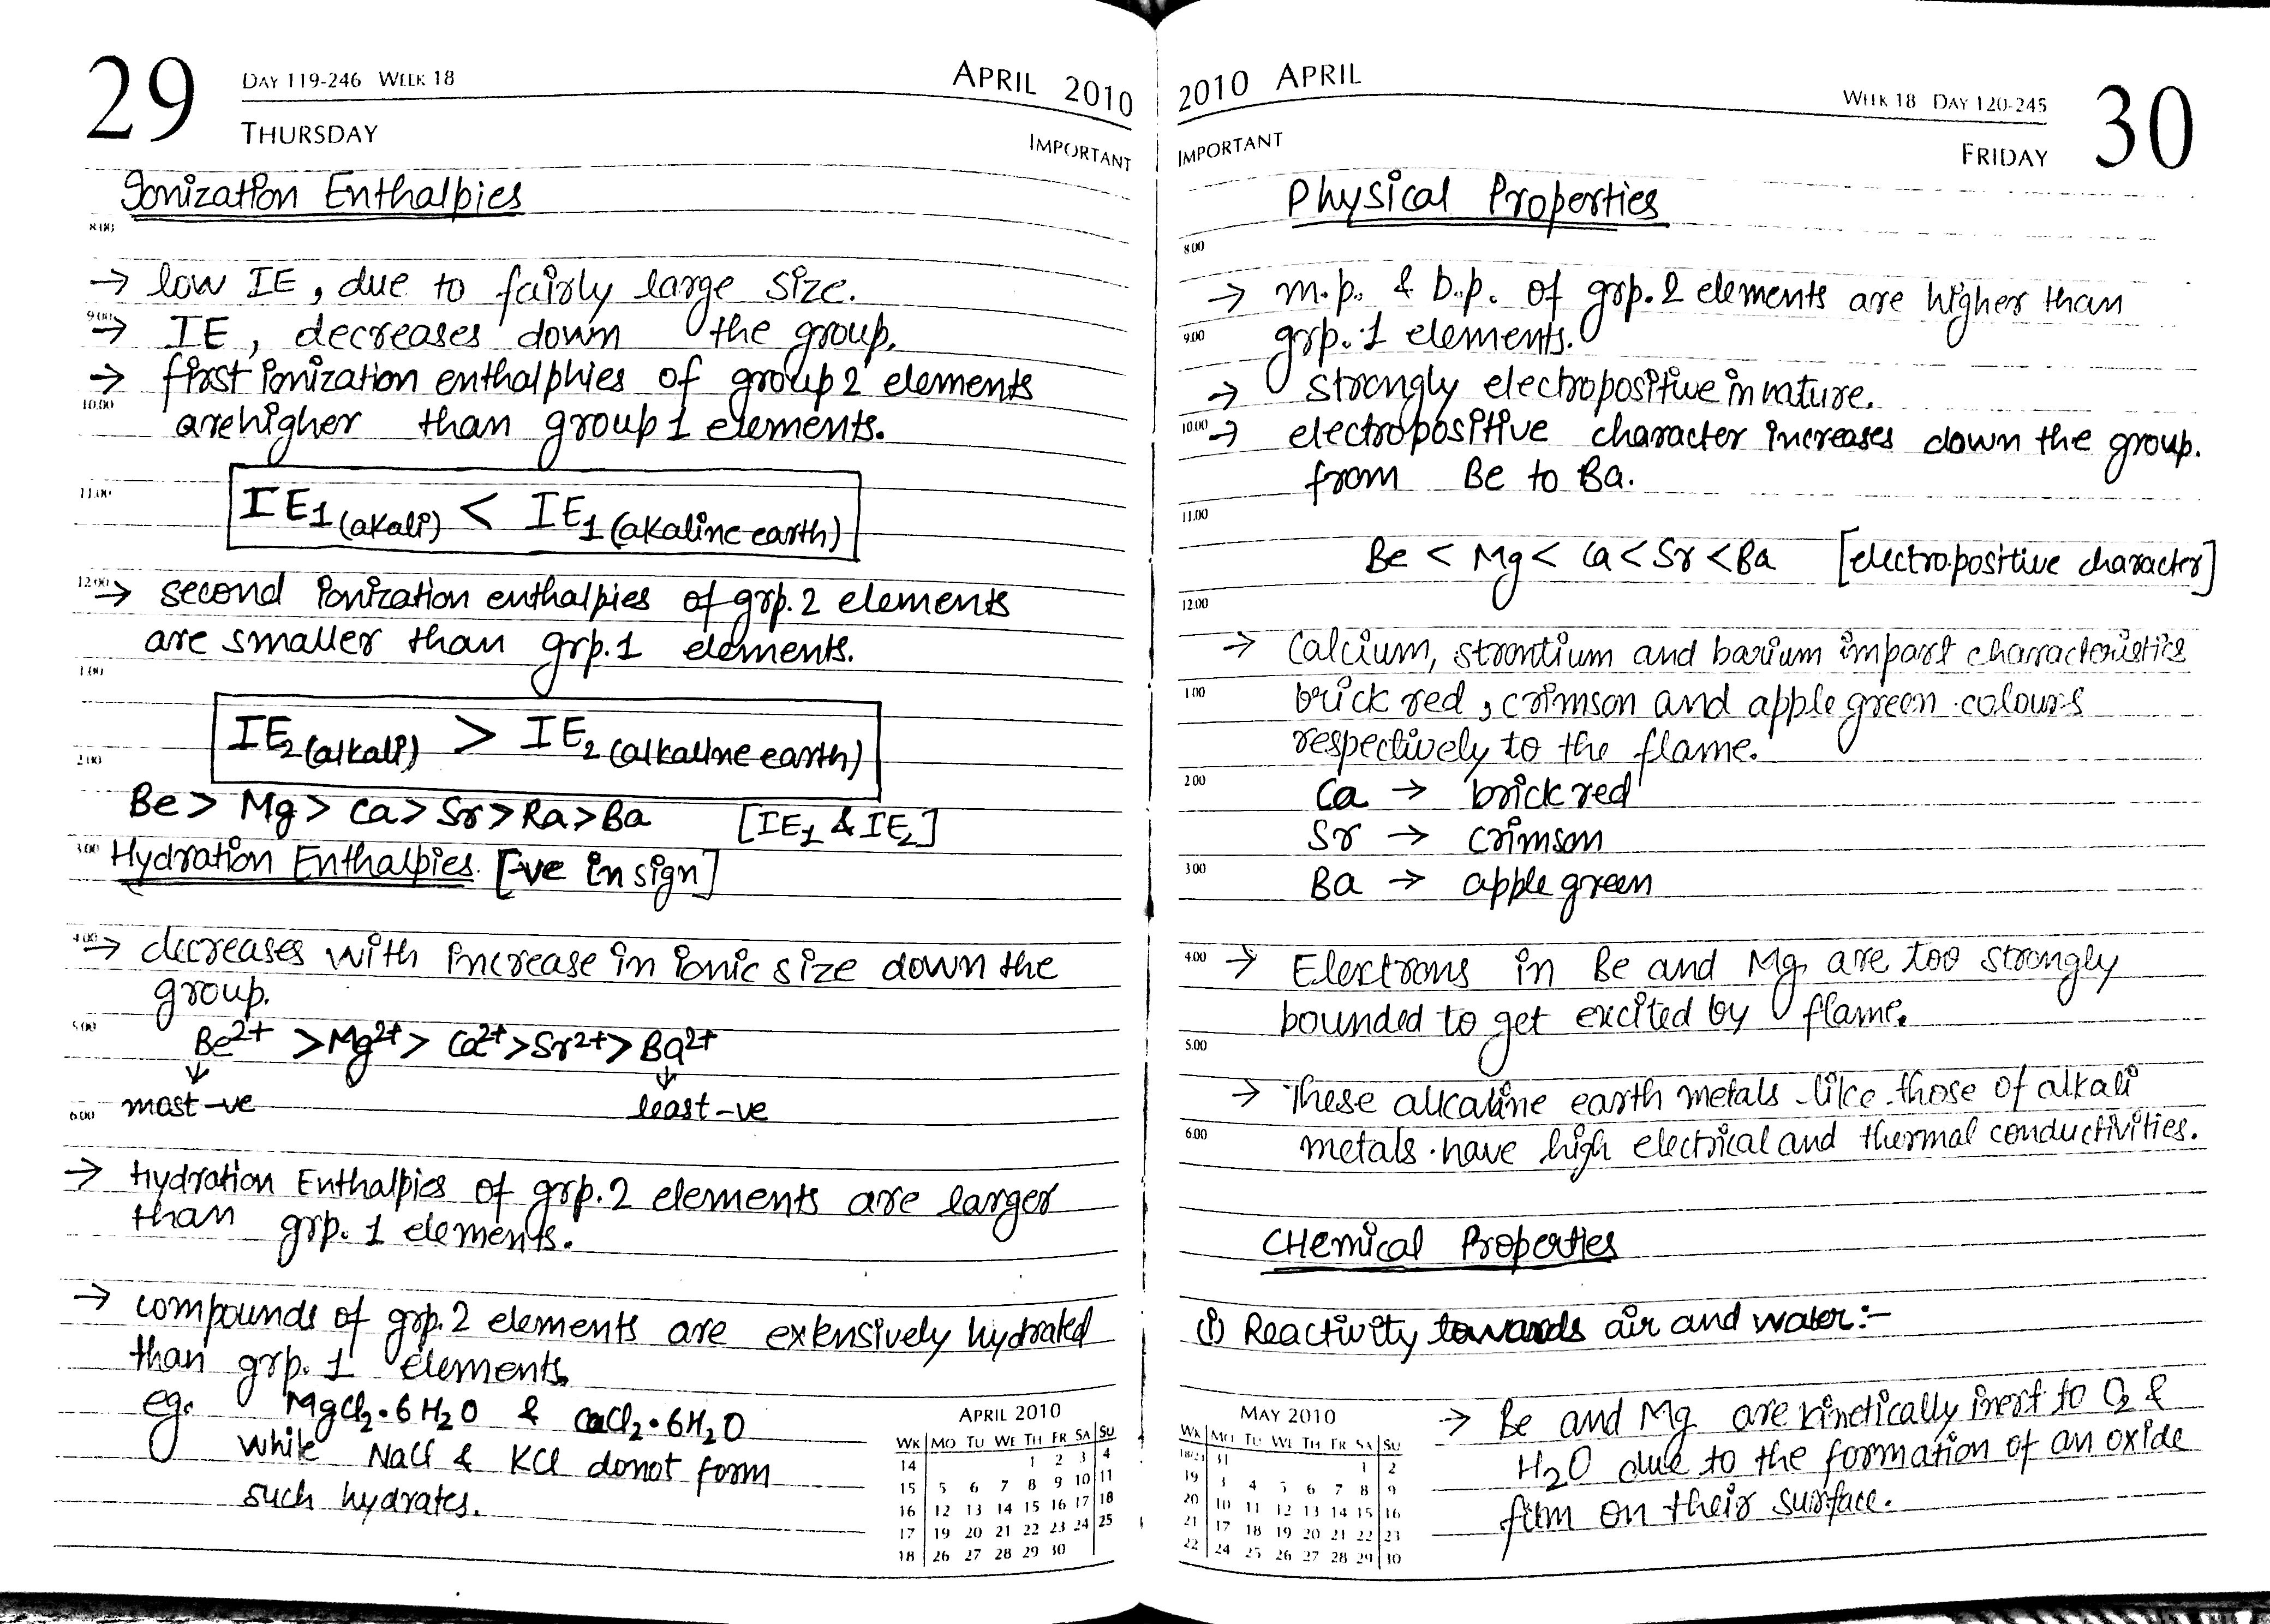 29
DAY 119-246 WEEK 18
APRIL 2010
THURSDAY
IMPORTANT
Ionization Enthalpies
8.00
→ low IE, due to fairly large size.
9.00
→ IE, decreases down the group.
→ first ionization enthalphies of group 2 elements
10.00
are higher than group 1 elements.
11.00
IE1 (akali) < IE1 (akaline earth)
12.00
→ second ionization enthalpies of grp. 2 elements
are smaller than grp. 1 elements.
1.00
IE2 (alkali) > IE2 (alkaline earth)
2.00
Be > Mg > Ca > Sr > Ra > Ba [IE1 & IE2]
3.00
Hydration Enthalpies. [-ve in sign]
4.00
→ decreases with increase in ionic size down the
group.
5.00
Be2+ > Mg2+ > Ca2+ > Sr2+ > Ba2+
↓ ↓
6.00
most -ve least -ve
→ Hydration Enthalpies of grp. 2 elements are larger
than grp. 1 elements.
→ compounds of grp. 2 elements are extensively hydrated
than grp. 1 elements.
eg. MgCl2•6H2O & CaCl2•6H2O
while NaCl & KCl donot form
such hydrates.
APRIL 2010
WK MO TU WE TH FR SA SU
14 1 2 3 4
15 5 6 7 8 9 10 11
16 12 13 14 15 16 17 18
17 19 20 21 22 23 24 25
18 26 27 28 29 30
2010 APRIL
WEEK 18 DAY 120-245
30
IMPORTANT
FRIDAY
Physical Properties
8.00
→ m.p. & b.p. of grp. 2 elements are higher than
9.00
grp. 1 elements.
→ strongly electropositive in nature.
10.00
→ electropositive character increases down the group.
from Be to Ba.
11.00
Be < Mg < Ca < Sr < Ba [electropositive character]
12.00
→ Calcium, strontium and barium impart characteristics
1.00
brick red, crimson and apple green colours
respectively to the flame.
2.00
Ca → brick red
Sr → crimson
3.00
Ba → apple green
4.00
→ Electrons in Be and Mg are too strongly
bounded to get excited by flame.
5.00
→ These alkaline earth metals like those of alkali
6.00
metals have high electrical and thermal conductivities.
CHemical Properties
(i) Reactivity towards air and water:-
→ Be and Mg are kinetically inert to O2 &
H2O due to the formation of an oxide
film on their surface.
MAY 2010
WK MO TU WE TH FR SA SU
18/23 31 1 2
19 3 4 5 6 7 8 9
20 10 11 12 13 14 15 16
21 17 18 19 20 21 22 23
22 24 25 26 27 28 29 30